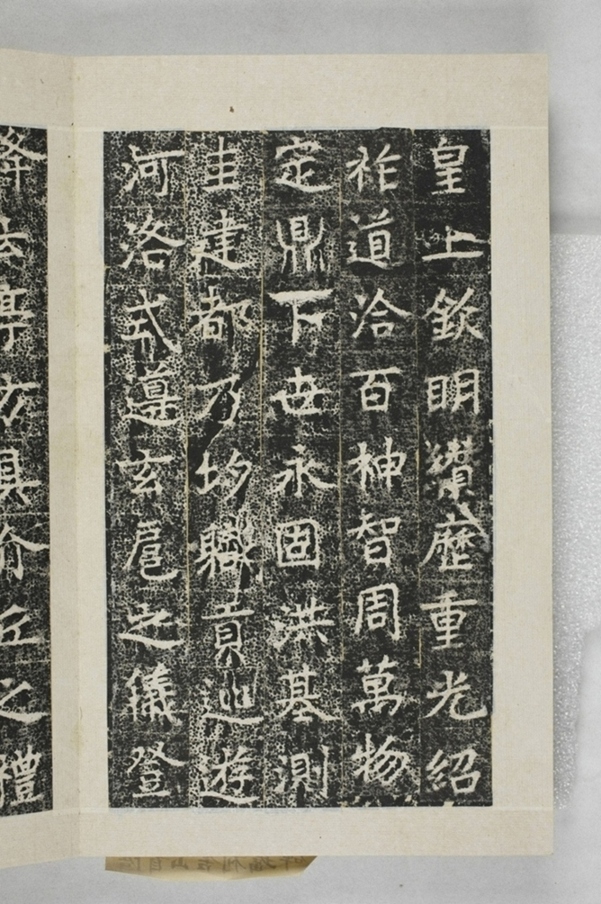 皇上欽明纘歷重光紹
祚道洽百神智周萬物
定鼎下世永固洪基測
圭建都乃均職貢巡遊
河洛式遵玄扈之儀登
降云亭方具介丘之禮